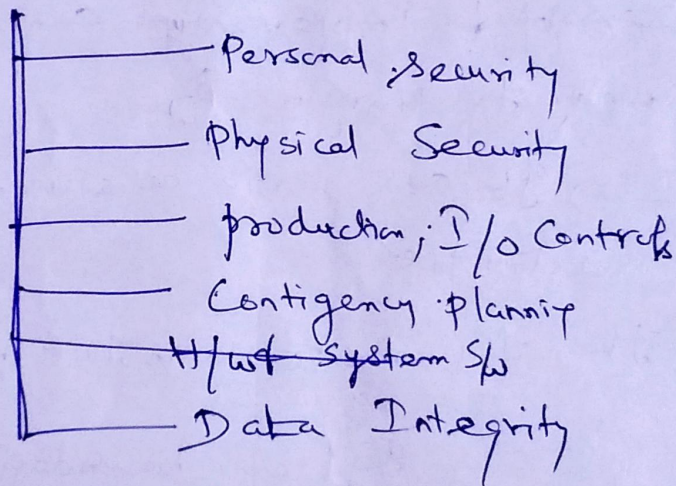 Personal Security
Physical Security
production, I/O Controls
Contigency plannig
H/w & System S/w
Data Integrity